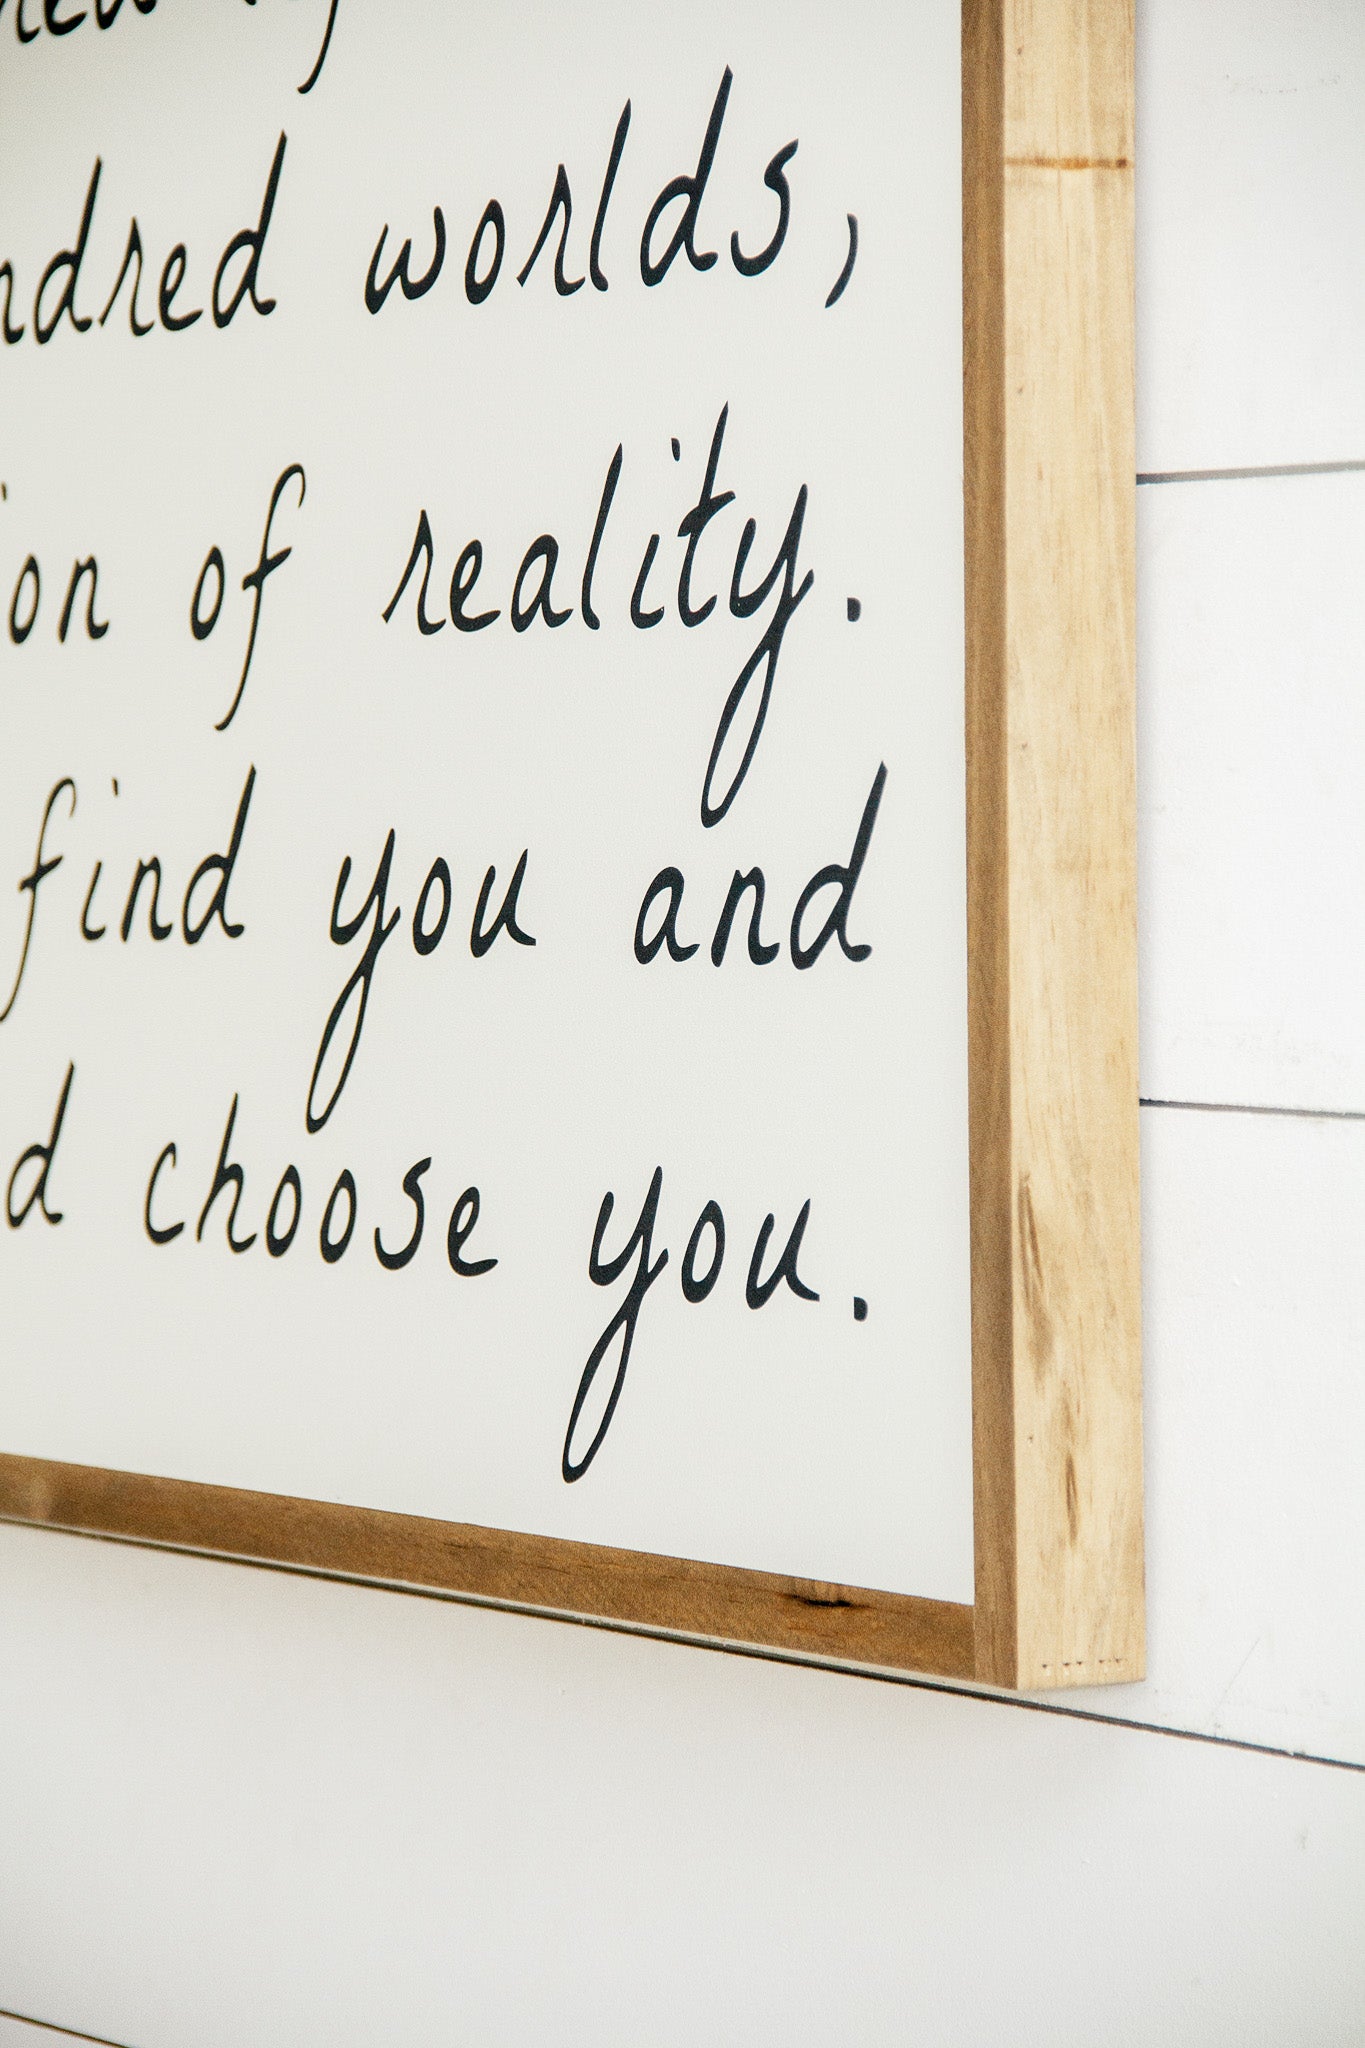 ndred worlds,
ion of reality.
find you and
d choose you.